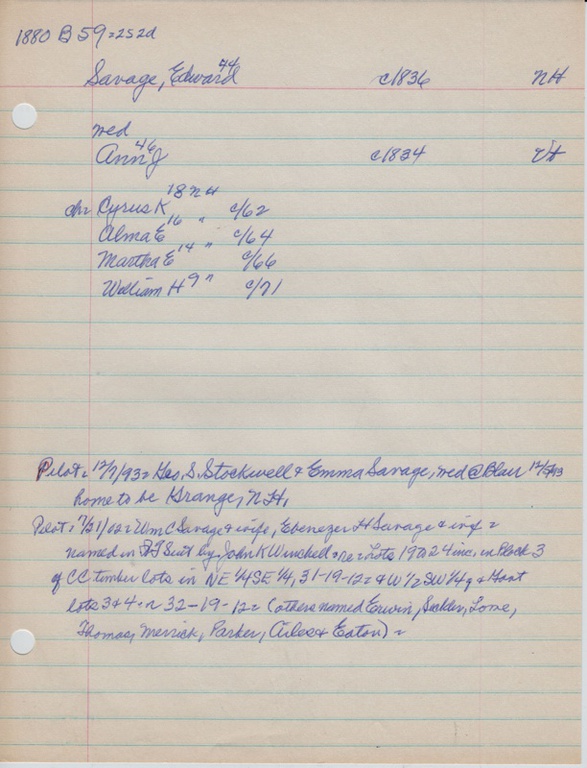 1880 B 59=252d
Savage, Edward 44 c1836 NH
wed
Ann J 46 c1834 Vt
chr Cyrus K 18 NH c/62
Alma E 16 " c/64
Martha E 14 " c/66
William H 9 " c/71
Pilot: 12/7/93= Geo, S. Stockwell & Emma Savage, wed @ Blair 12/5/93
home to be Grange, N.H,
Pilot: 7/31/02= Wm C Savage & wife, Ebenezer H Savage & wife =
named in Suit by John K Winchell = re = Lots 19 to 24 inc, in Block 3
of CC timber lots in NE 1/4 SE 1/4, 31-19-12= & W 1/2 SW 1/4 & Govt
lots 3 & 4 = 32-19-12= (others named Erwin, Lone,
Thomas, Merrick, Parker, & Eaton) =